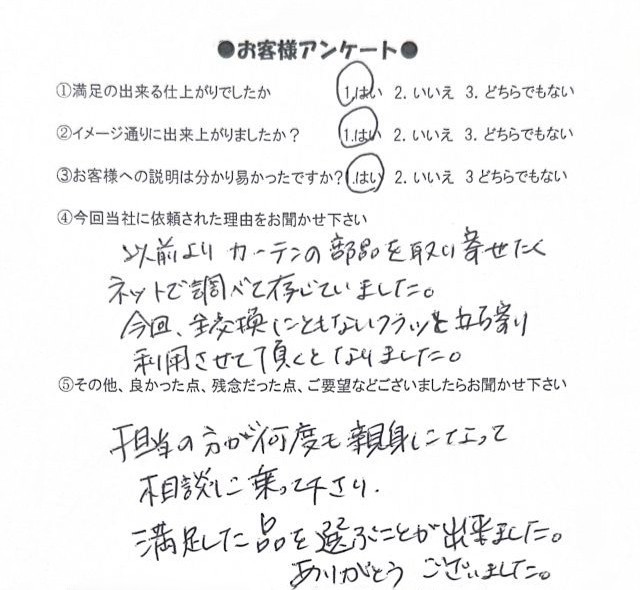 ●お客様アンケート●
①満足の出来る仕上がりでしたか 1.はい 2. いいえ 3. どちらでもない
②イメージ通りに出来上がりましたか？ 1.はい 2. いいえ 3. どちらでもない
③お客様への説明は分かり易かったですか？ 1.はい 2. いいえ 3 どちらでもない
④今回当社に依頼された理由をお聞かせ下さい
以前より カーテンの部品を取り寄せたく
ネットで調べて存じていました。
今回、全交換にともないフラッと立ち寄り
利用させて頂くとなりました。
⑤その他、良かった点、残念だった点、ご要望などございましたらお聞かせ下さい
担当の方が何度も親身になって
相談に乗って下さり、
満足した品を選ぶことが出来ました。
ありがとう ございました。